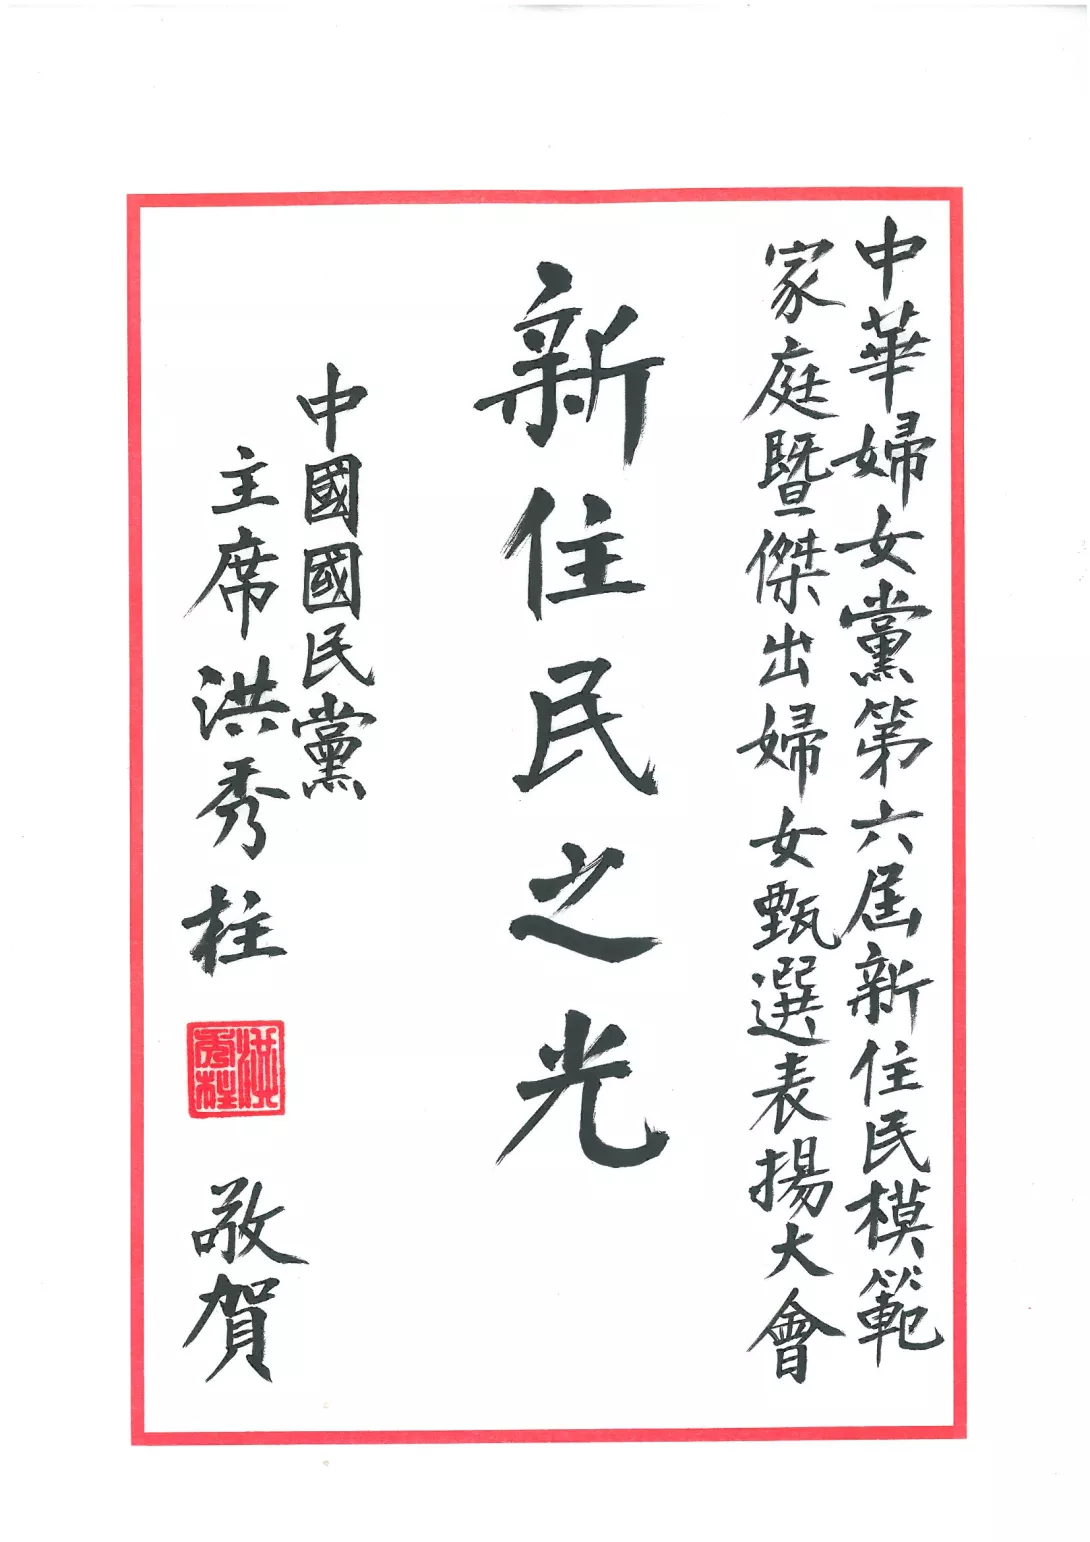 中華婦女黨第六屆新住民模範
家庭暨傑出婦女甄選表揚大會
新住民之光
中國國民黨
主席洪秀柱
洪秀柱
敬賀